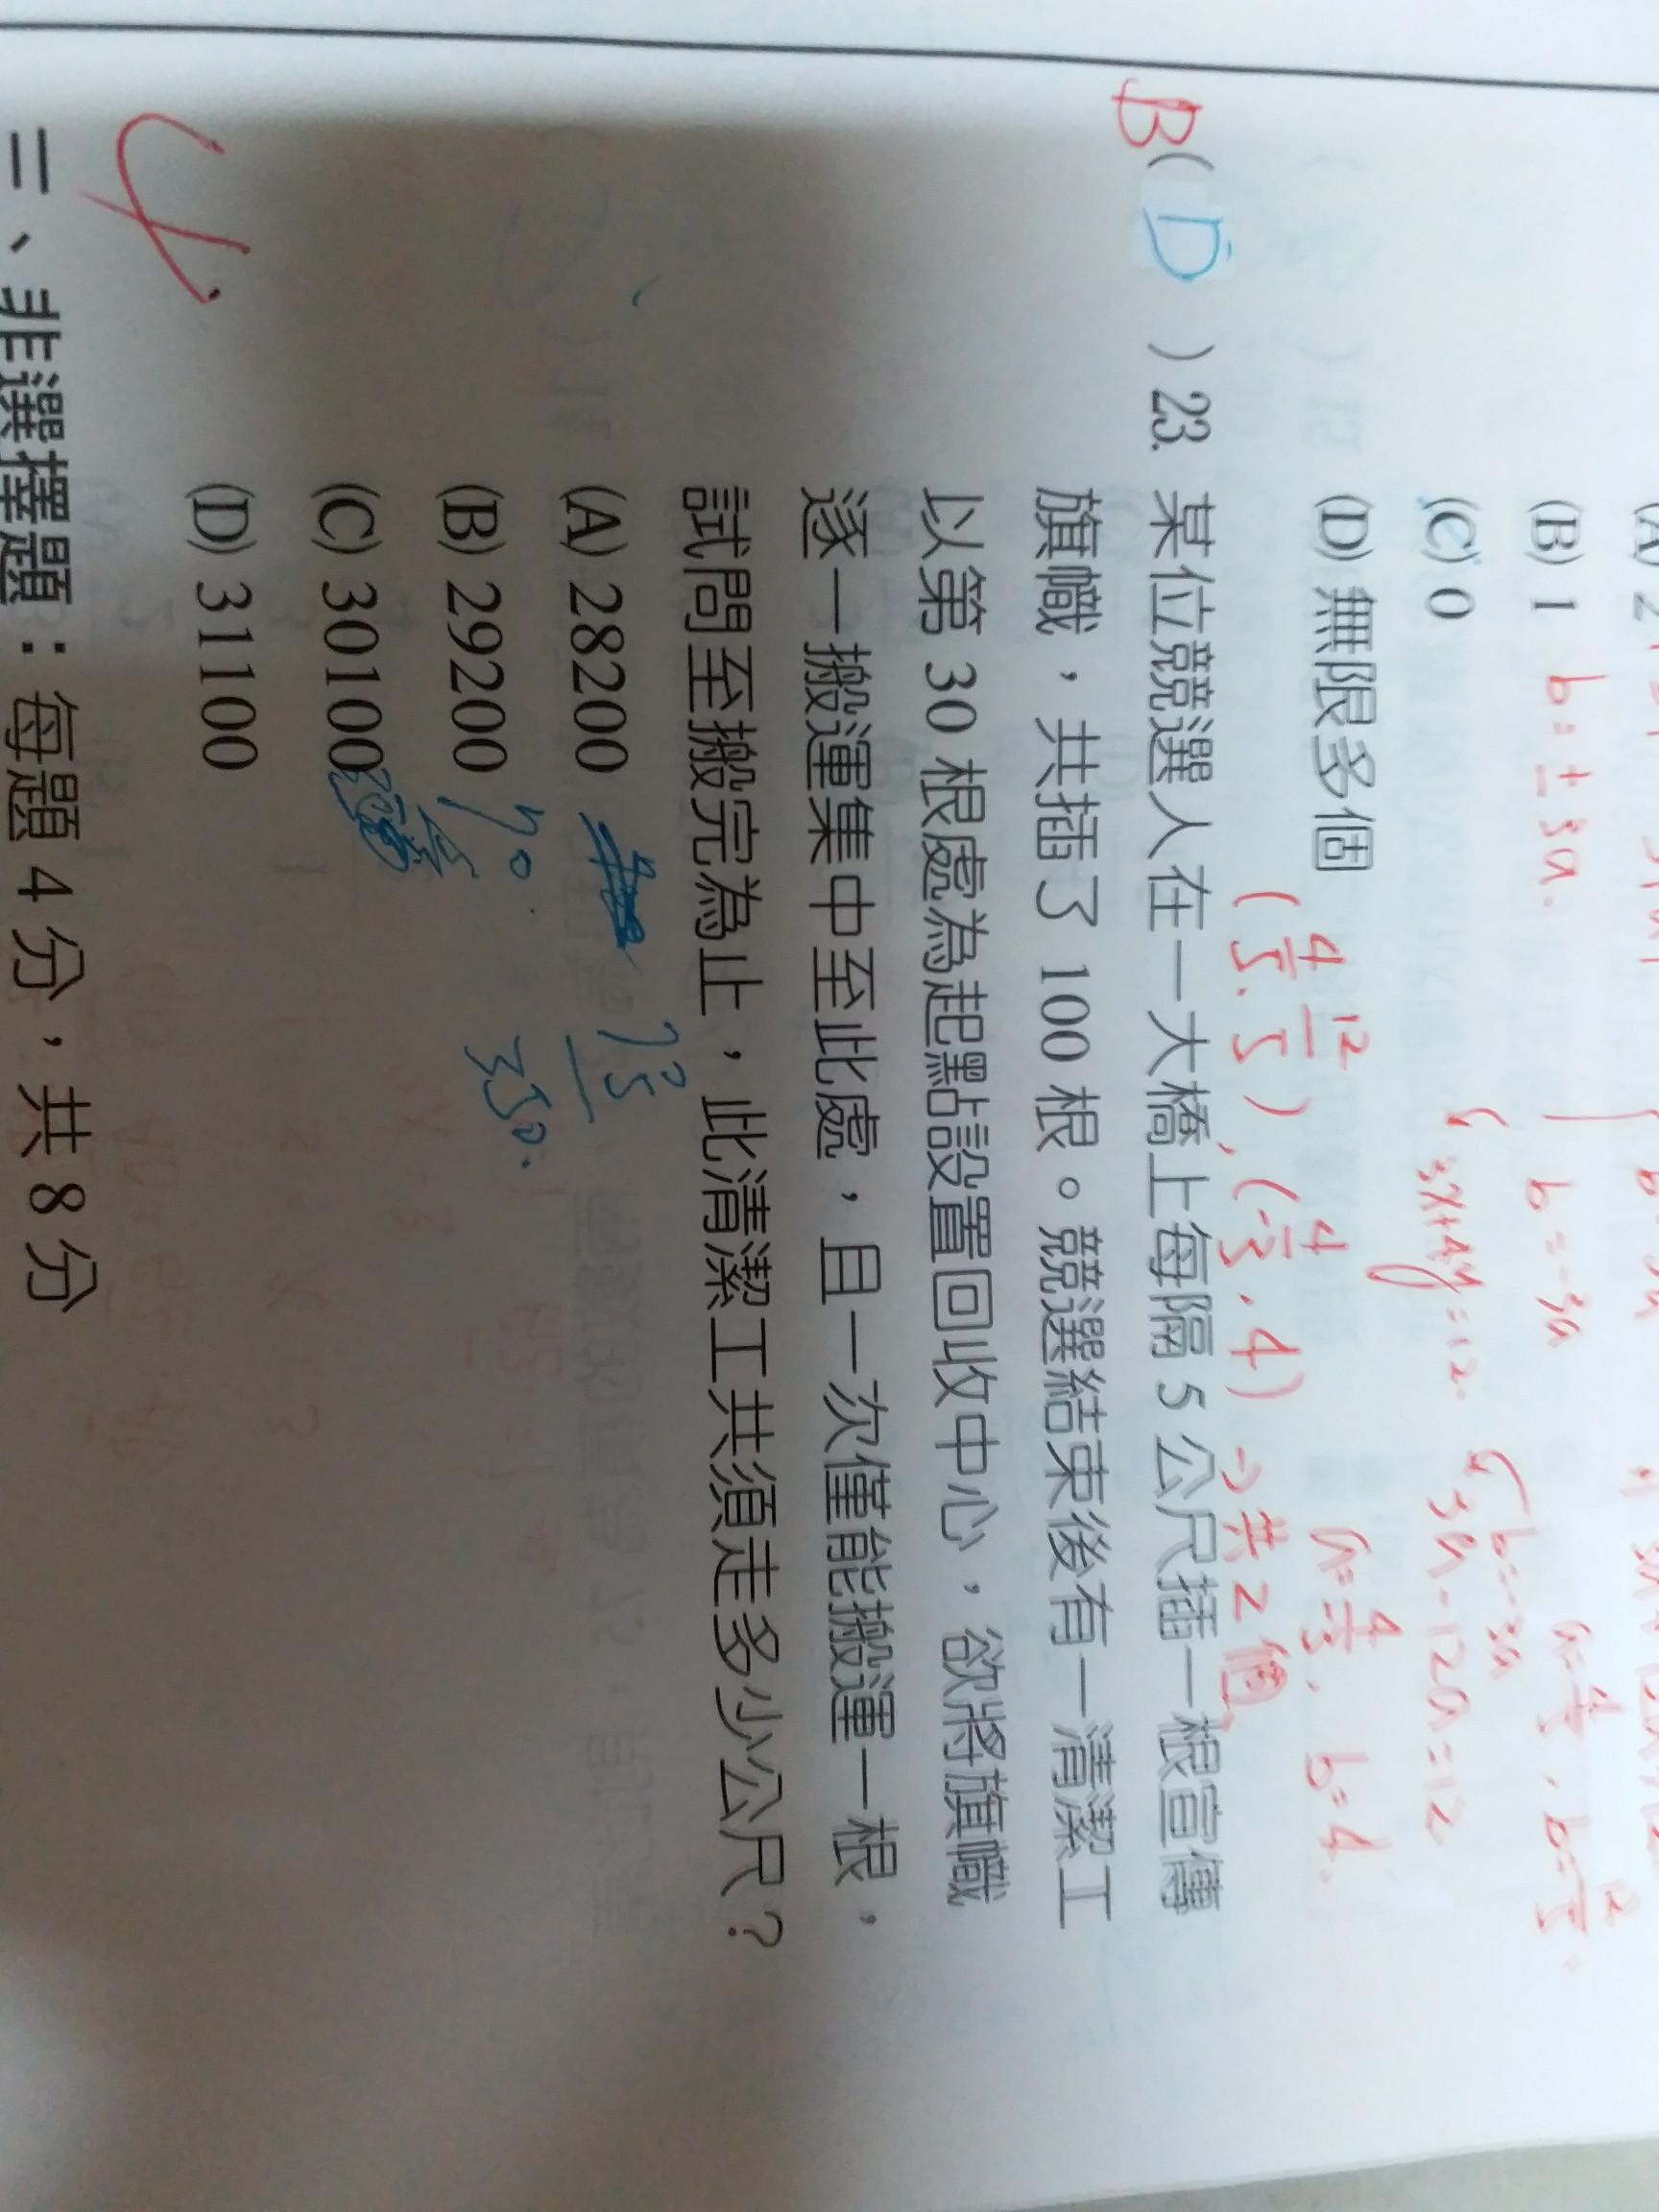 (B) 1 b=±3a. b=-3a a=4/5, b=12/5.
(C) 0 3x+4y=12. b=-3a 3a-12a=12
(D) 無限多個 a=-4/3, b=4.
(4/5, 12/5), (-4/3, 4) → 共2個
B( D ) 23. 某位競選人在一大橋上每隔 5 公尺插一根宣傳
旗幟，共插了 100 根。競選結束後有一清潔工
以第 30 根處為起點設置回收中心，欲將旗幟
逐一搬運集中至此處，且一次僅能搬運一根，
試問至搬完為止，此清潔工共須走多少公尺？
(A) 28200
(B) 29200
(C) 30100
(D) 31100
350.
二、非選擇題：每題 4 分，共 8 分